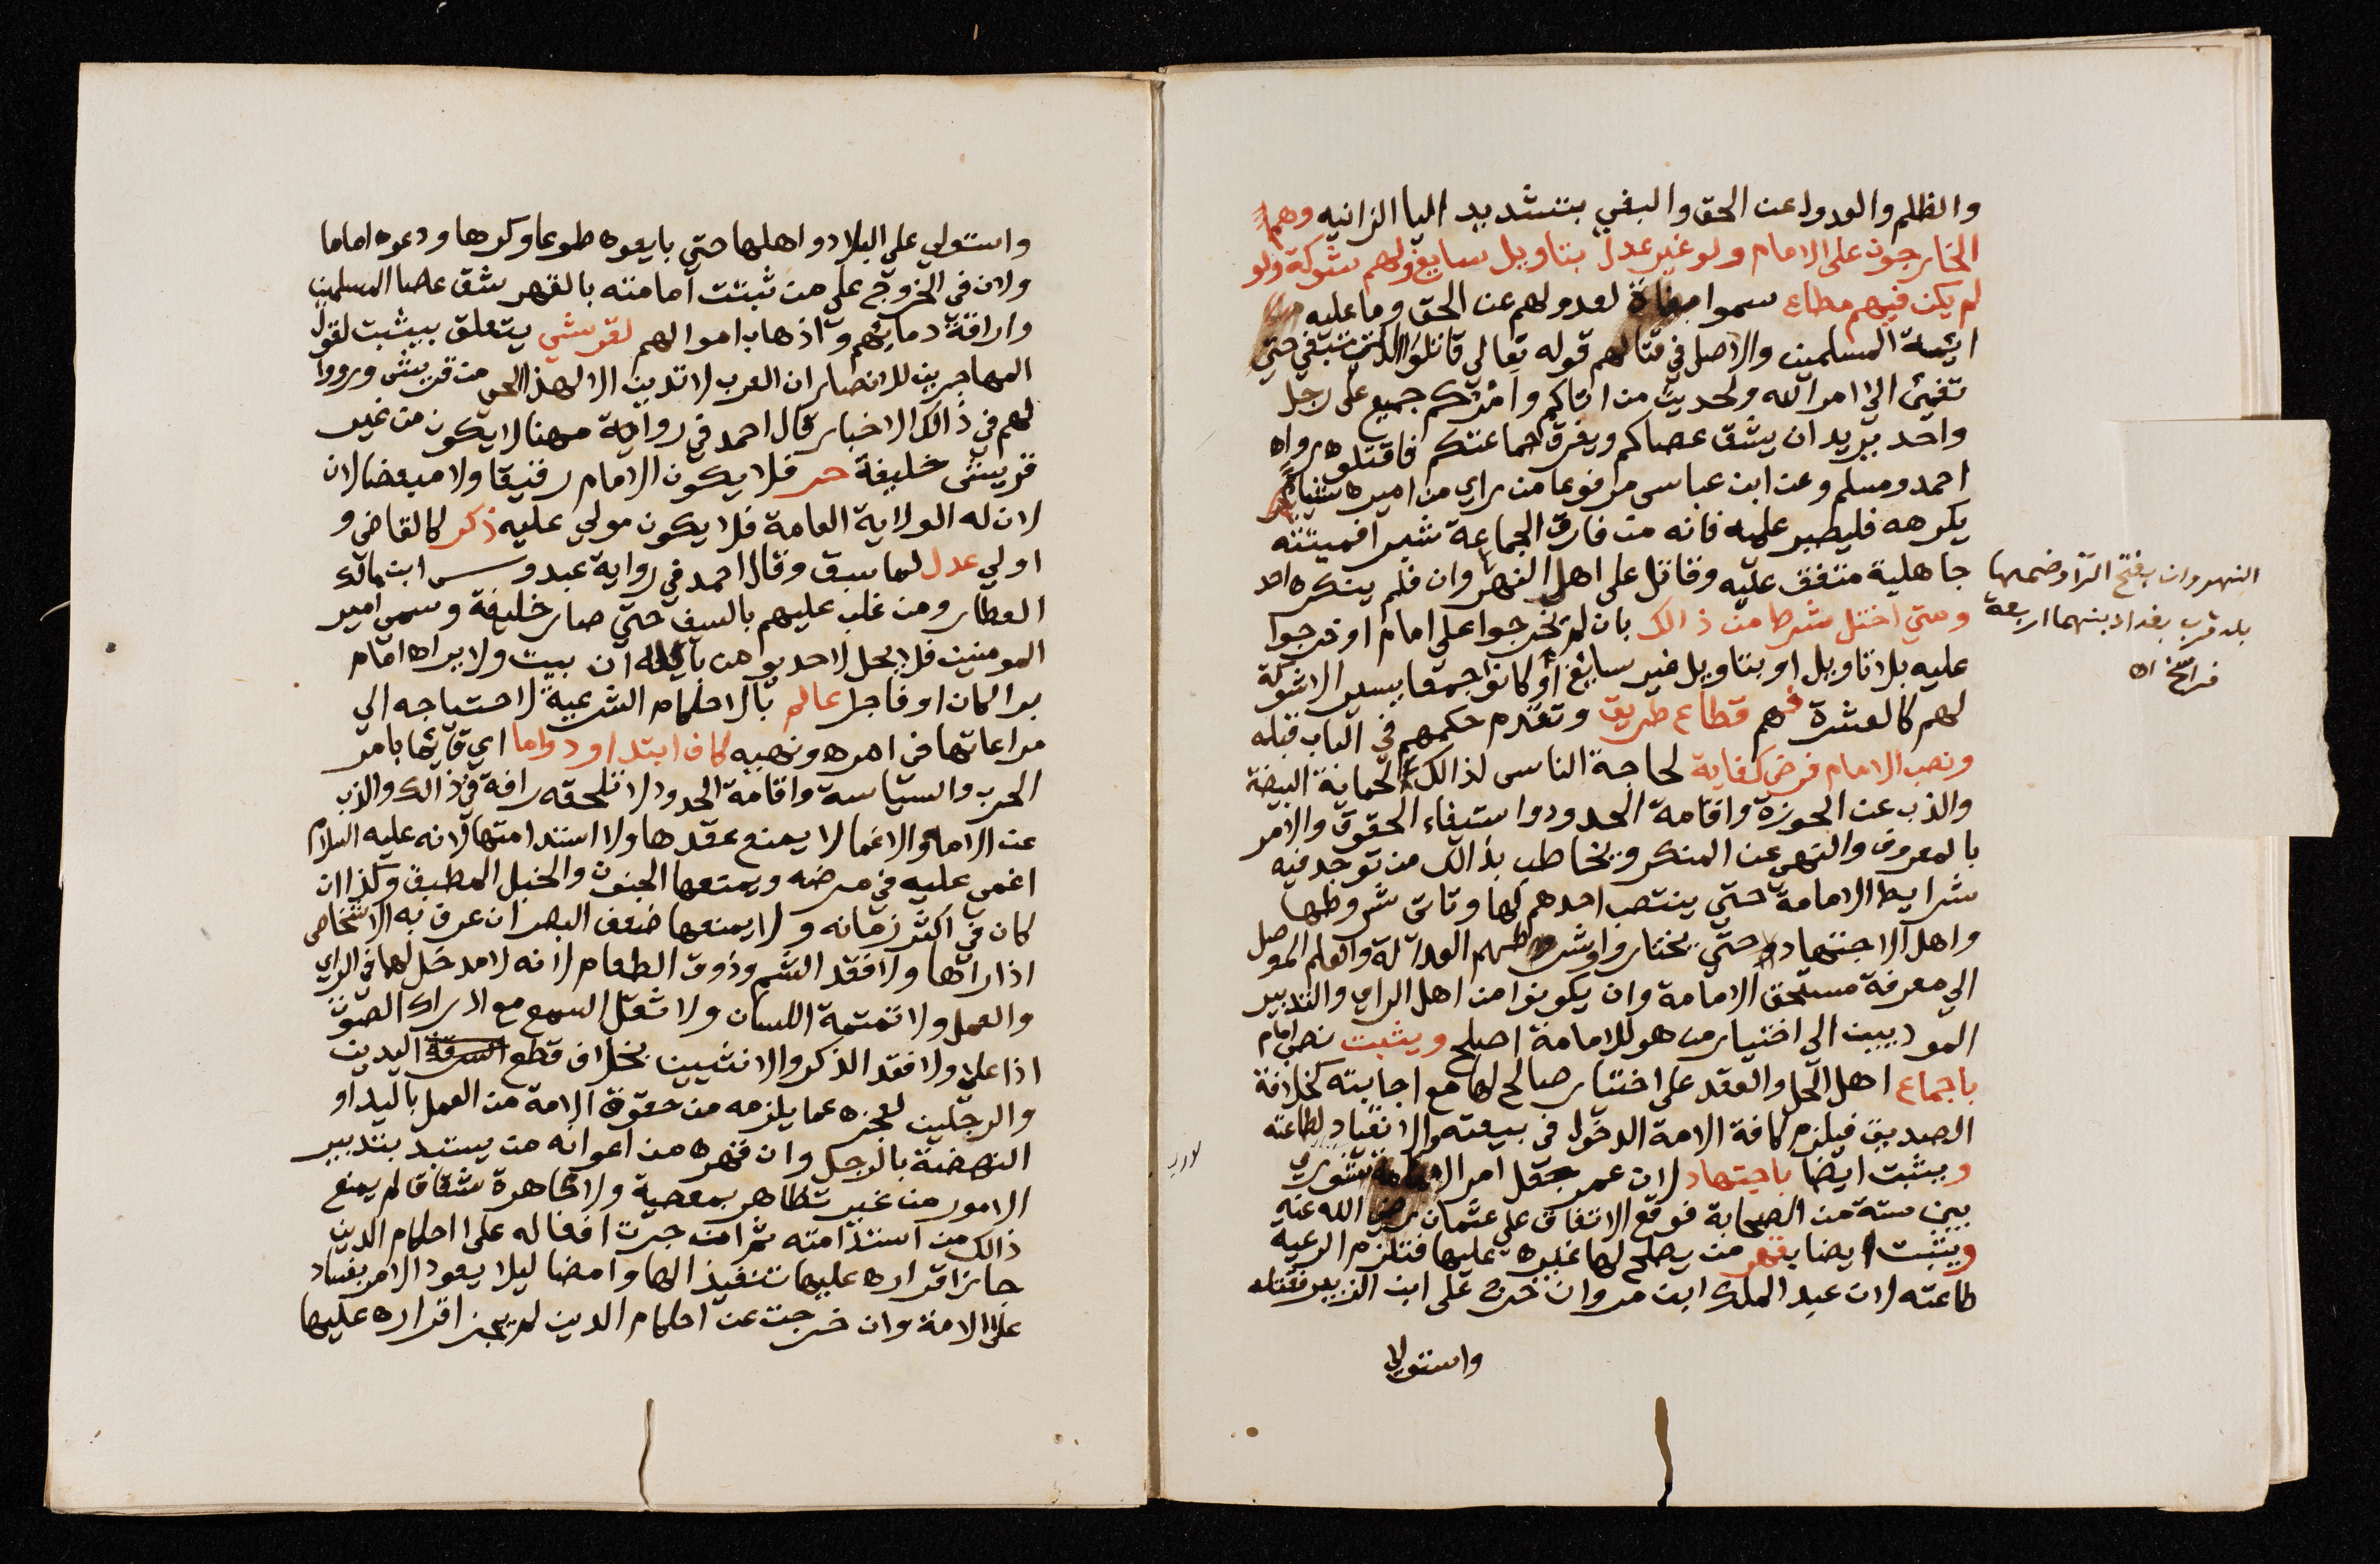 والظلم والعدول عن الحق والبغي بتشديد اليا الزانيه وهم
الخارجون على الامام ولو غير عدل بتاويل سايغ ولهم شوكة ولو
لم يكن فيهم مطاع سموا بغاة لعدولهم عن الحق وما عليه
ايمة المسلمين والاصل في قتالهم قوله تعالي قاتلوا التي تبغي حتي
تفيئ الي امر الله ولحديث من اتاكم وامركم جميع على رجل
واحد يريد ان يشق عصاكم ويفرق جماعتكم فاقتلوه رواه
احمد ومسلم وعن ابن عباس مرفوعا من راي من اميره شيئا
يكرهه فليصبر عليه فانه من فارق الجماعة شبرا فميتته
جاهلية متفق عليه وقاتل على اهل النهروان فلم ينكره احد
ومتي اختل شرط من ذالك بان لم يخرجوا علي امام او خرجوا
عليه بلا تاويل او بتاويل غير سايغ او كانوا جمعا يسيرا لا شوكة
لهم كالعشرة فهم قطاع طريق وتقدم حكمهم في الباب قبله
ونصب الامام فرض كفاية لحاجة الناس لذالك لحماية البيضة
والذب عن الحوزة واقامة الحدود واستيفاء الحقوق والامر
بالمعروف والنهي عن المنكر ويخاطب بذالك من توجد فيه
شرايط الامامة حتي ينتصب احدهم لها وتاتي شروطها
واهل الاجتهاد حتي يختاروا وشرطهم العدالة والعلم الموصل
الي معرفة مستحق الامامة وان يكونوا من اهل الراي والتدبير
المودييين الي اختيار من هو للامامة اصلح ويثبت نصب امام
باجماع اهل الحل والعقد على اختيار صالح لها مع اجابته كخلافة
الصديق فيلزم كافة الامة الدخول في بيعته والانقياد لطاعته
ويثبت ايضا باجتهاد لان عمر جعل امر الامامة شوري
بين ستة من الصحابة فوقع الاتفاق علي عثمان رضي الله عنه
ويثبت ايضا بقهر من يصلح لها غيره عليها فتلزم الرعية
طاعته لان عبد الملك ابن مروان خرج على ابن الزبير فقتله
واستولي
النهروان بفتح الرا وضمها
بلد قرب بغداد بينهما اربعة
فراسخ اه
واستولي علي البلاد واهلها حتي بايعوه طوعا وكرها ودعوه اماما
ولان في الخروج علي من ثبتت امامته بالقهر شق عصا المسلمين
واراقة دمايهم واذهاب اموالهم لقرشي يتعلق بيثبت لقول
المهاجرين للانصار ان العرب لا تدين الا لهذا الحي من قريش ورووا
لهم في ذالك الاخبار قال احمد في رواية مهنا لا يكون من غير
قريش خليفة حر فلا يكون الامام رقيقا ولا مبعضا لان
لان له الولاية العامة فلا يكون مولي عليه ذكر كالقاضي و
اولي عدل لما سبق وقال احمد في رواية عبدوس ابن مالك
العطار ومن غلب عليهم بالسيف حتي صار خليفة وسمي امير
المومنين فلا يحل لاحد يومن بالله ان يبيت ولا يراه امام
برا كان او فاجرا عالم بالاحكام الشرعية لاحتياجه الي
مراعاتها في امره ونهيه كاف ابتدا ودواما اي قايما بامر
الحرب والسياسة واقامة الحدود لا تلحقه رافة في ذالك والذب
عن الامة والاغما لا يمنع عقدها ولا استدامتها لانه عليه السلام
اغمي عليه في مرضه ويمنعها الجنون والخبل المطبق وكذا ان
كان في اكثر زمانه ولا يمنعها ضعف البصر ان عرف به الاشخاص
اذا راها ولا فقد الشم وذوق الطعام لانه لا مدخل لها في الراي
والعمل ولا تمتمة اللسان ولا ثقل السمع مع ادراك الصوت
اذا علي ولا فقد الذكر والانثيين بخلاف قطع اليدين
والرجلين لعجزه عما يلزمه من حقوق الامة من العمل باليد او
النهضة بالرجل وان قهره من اعوانه من يستبد بتدبير
الامور من غير تظاهر بمعصية ولا مجاهرة شقاق لم يمنع
ذالك من استدامته ثم ان جرت افعاله علي احكام الدين
جاز اقراره عليها تنفيذا لها وامضا ليلا يعود الامر بفساد
على الامة وان خرجت عن احكام الدين لم يجز اقراره عليها